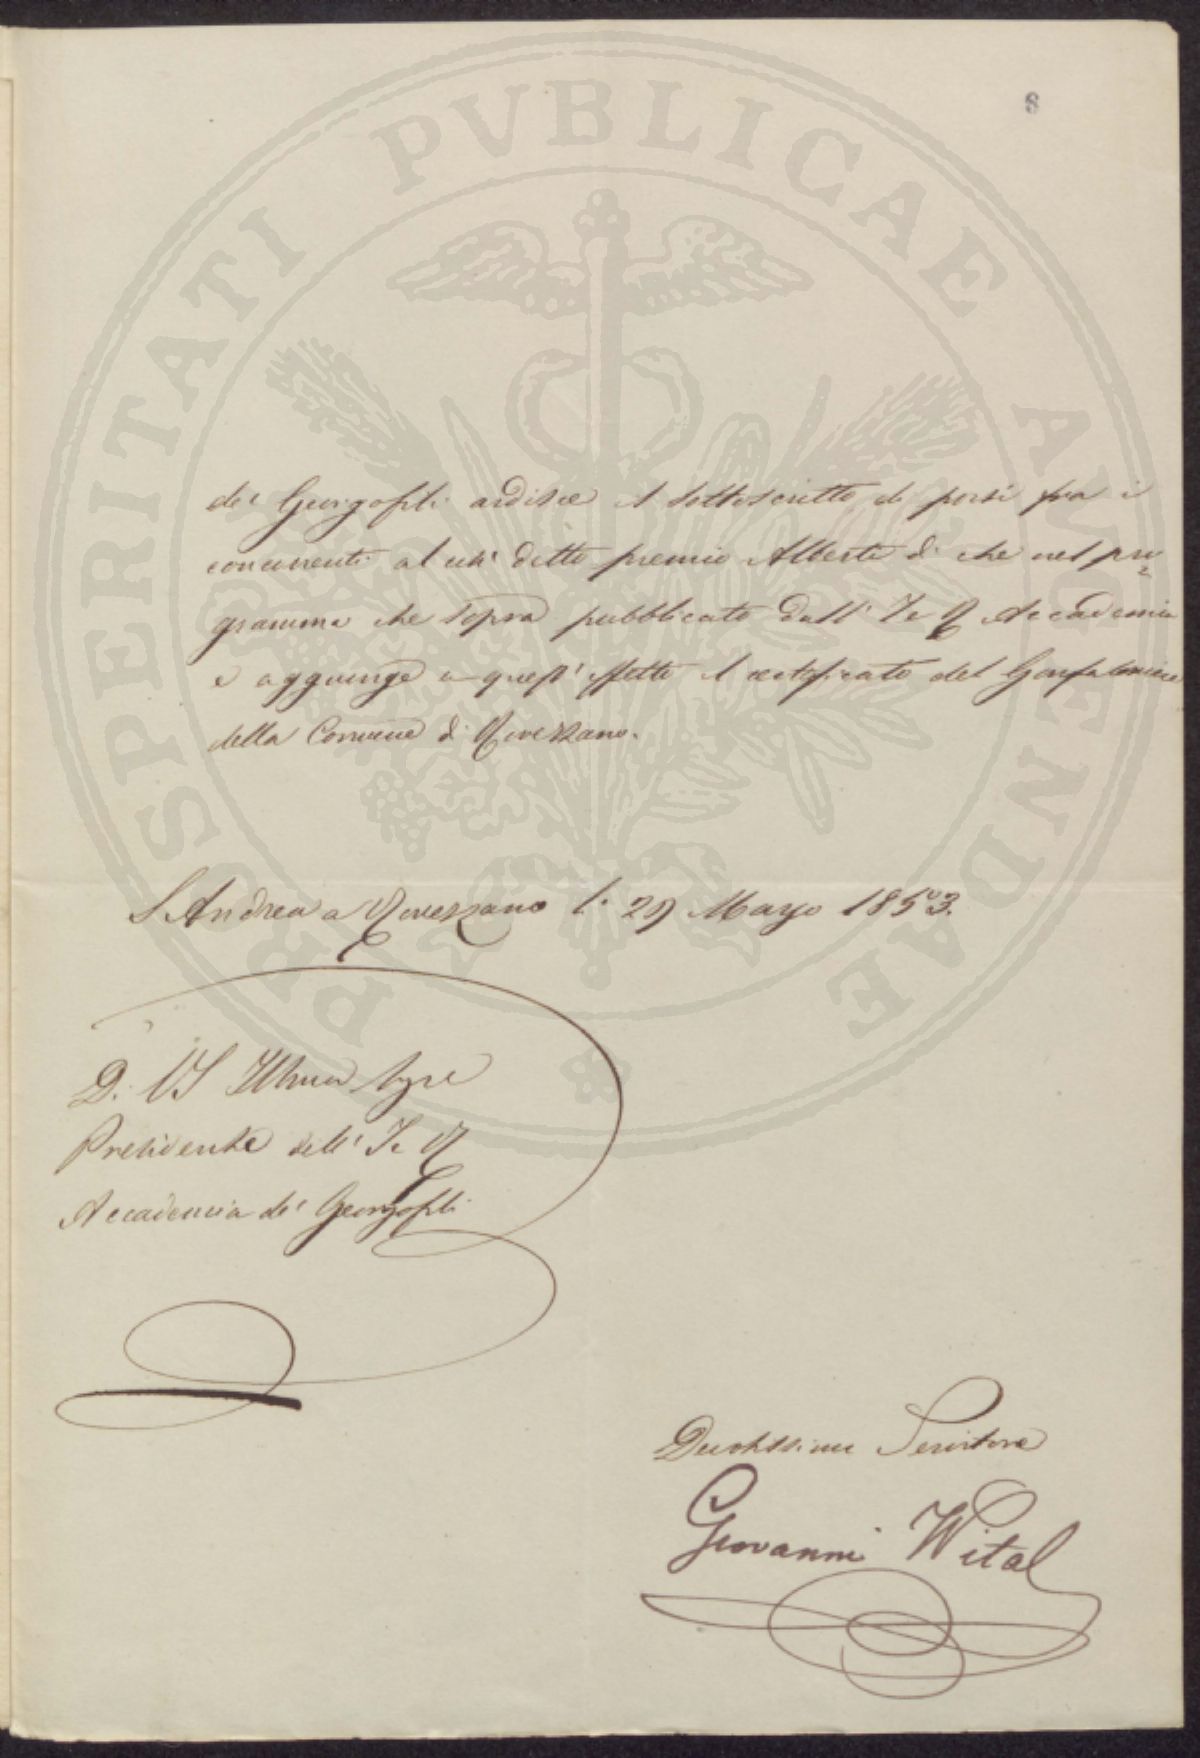 8
PROSPERITATI PVBLICAE AVGENDAE
de' Georgofili ardisce il sottoscritto di porsi fra i
concorrenti al già detto premio Alberti di che nel pro=
gramma che sopra pubblicato dall' I e R Accademia
e aggiunge a quest' effetto il certificato del Gonfaloniere
della Comune di Rovezzano.
S Andrea a Rovezzano li 29 Mayo 1853.
D. VS Illma
Presidente dell' I e R
Accademia de' Georgofili
Devotissimo Servitore
Giovanni Vital